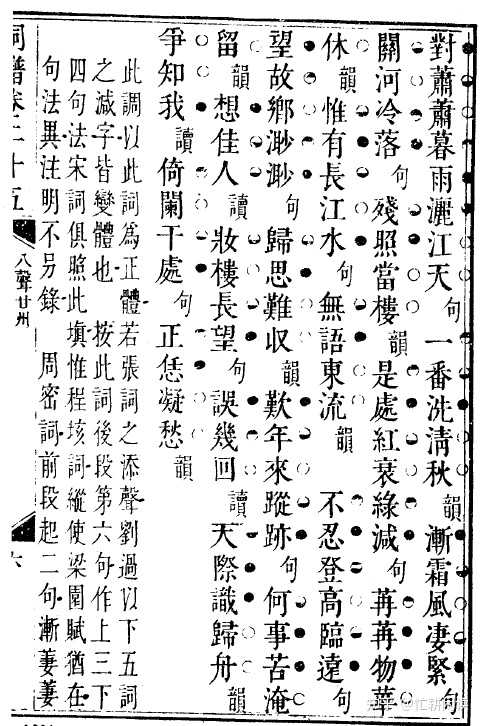 對蕭蕭暮雨灑江天句一番洗清秋韻漸霜風淒緊句
關河冷落句殘照當樓韻是處紅衰綠減句苒苒物華
休韻惟有長江水句無語東流韻不忍登高臨遠句
望故鄉渺渺句歸思難收韻歎年來蹤跡句何事苦淹
留韻想佳人讀妝樓長望句誤幾回讀天際識歸舟韻
爭知我讀倚闌干處句正恁凝愁韻
此調以此詞為正體若張詞之添聲劉過以下五詞
之減字皆變體也按此詞後段第六句作上三下
四句法宋詞俱照此填惟程垓詞縱使梁園賦猶在
句法異注明不另錄周密詞前段起二句漸萋萋
詞譜卷二十五
八聲甘州
六